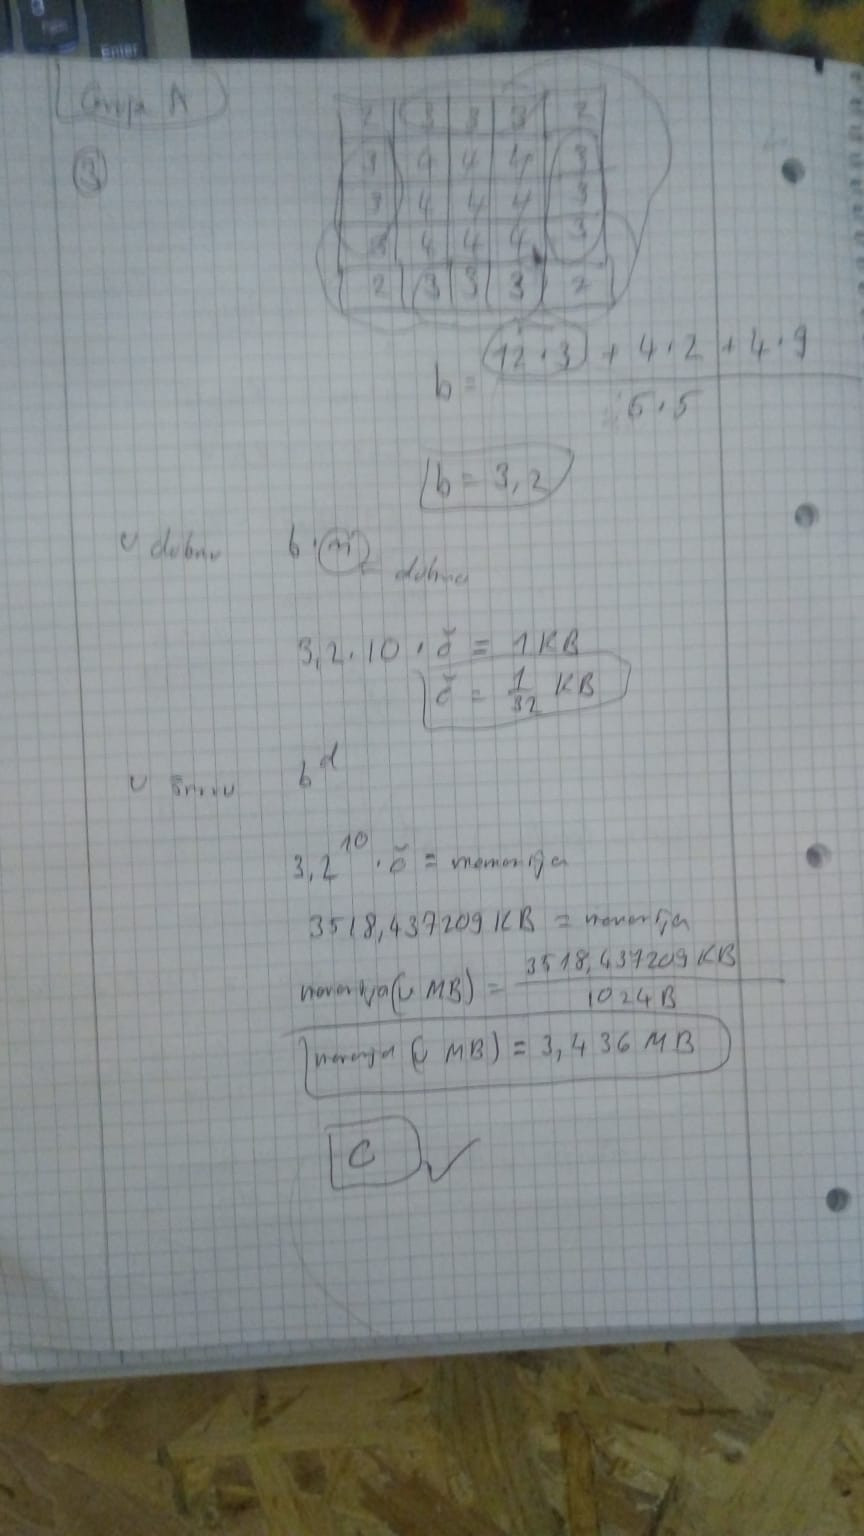 Enter
Grupa A
3
2 3 3 3 2
3 4 4 4 3
3 4 4 4 3
3 4 4 4 3
2 3 3 3 2
b = (12 · 3 + 4 · 2 + 4 · 9) / 5 · 5
b = 3,2
U dubinu b · m = dubina
3,2 · 10 · č = 1 KB
č = 1/32 KB
U širinu b^d
3,2^10 · č = memorija
3518,437209 KB = memorija
memorija (u MB) = 3518,437209 KB / 1024 B
memorija (u MB) = 3,436 MB
C ✓